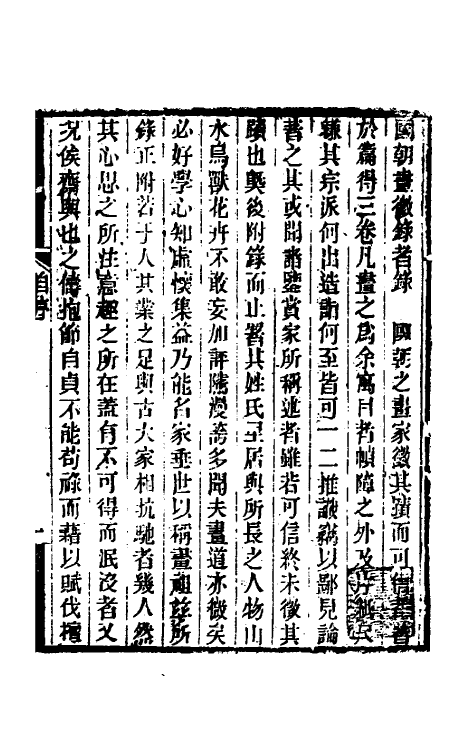 國朝畫徵錄者錄　國朝之畫家徵其蹟而可
於篇得三卷凡畫之爲余寓目者幀障之外及片紙尺
縑其宗派何出造詣何至皆可一二推識竊以鄙見論
著之其或聞諸鑒賞家所稱述者雖若可信終未徵其
蹟也奥後附錄而止署其姓氏里居與所長之人物山
水鳥獸花卉不敢妄加評隲漫誇多聞夫畫道亦微矣
必好學心知虛懷集益乃能名家垂世以稱畫祖茲所
錄正附若干人其業之足與古大家相抗馳者幾人然
其心思之所注意趣之所在蓋有不可得而泯沒者又
況侯齋輿也之儔抱節自貞不能苟祿而藉以賦伐檀
自序
一